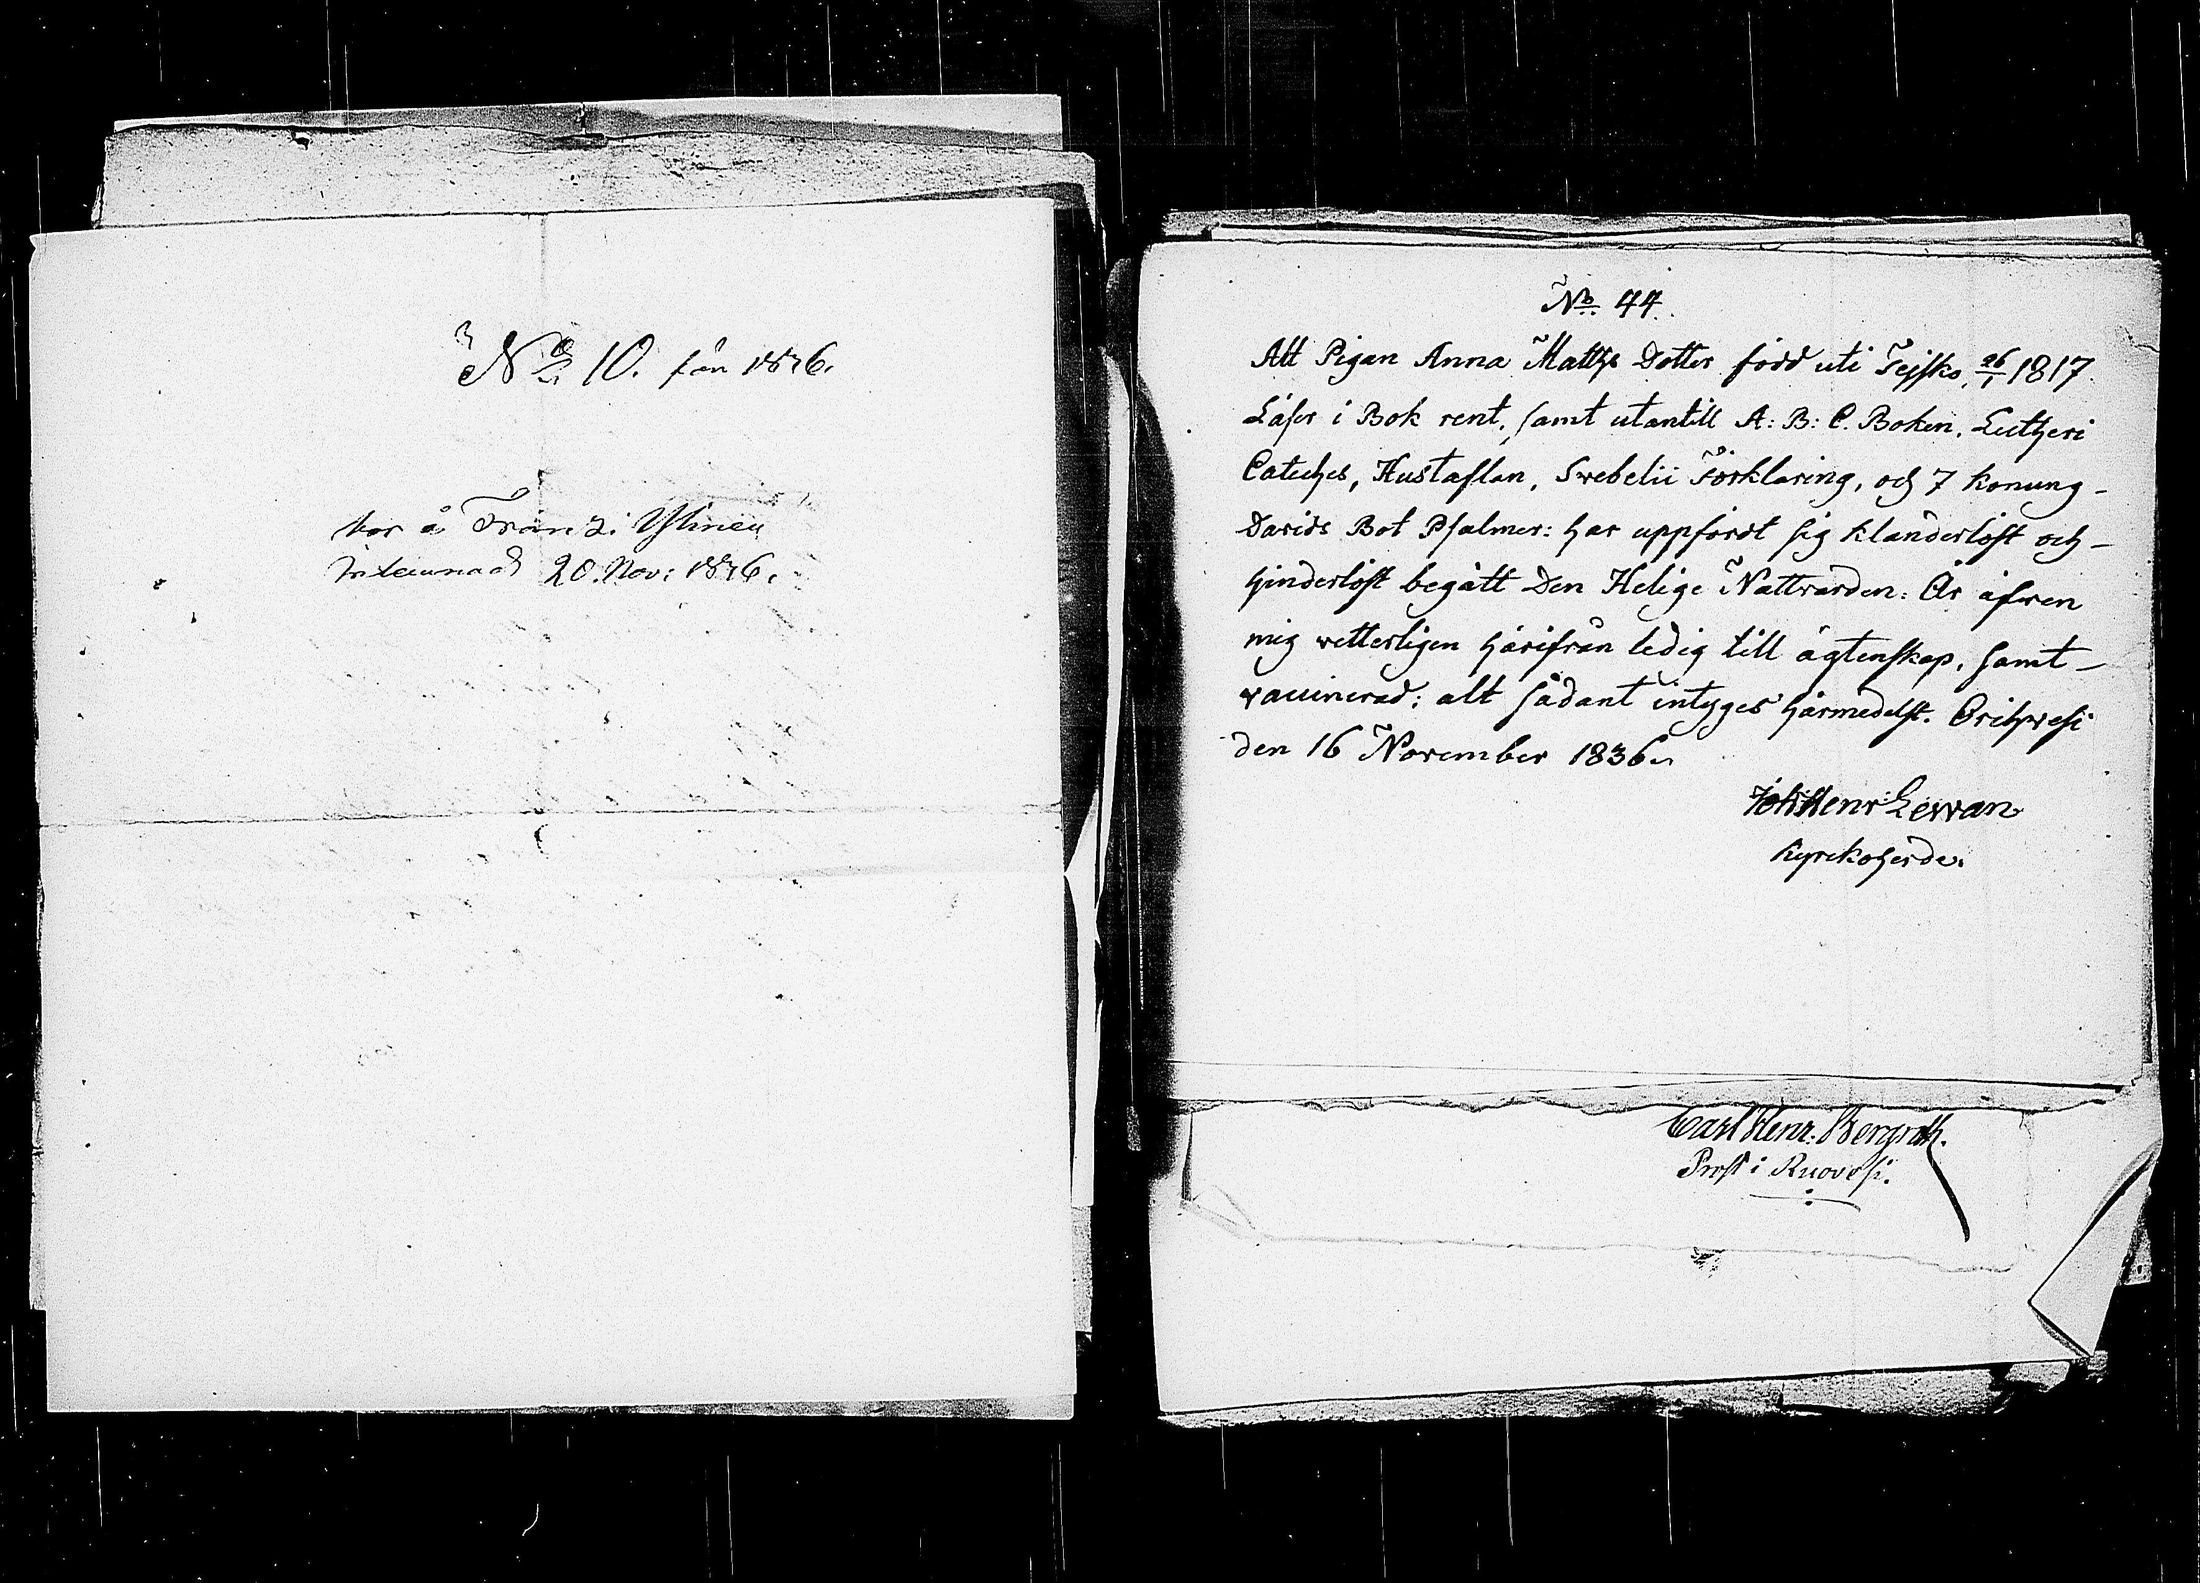 No 10. för 1836.
bor å Tranzi Ylinen
Inlemnad 20. Nov: 1836.
No 44.
Att Pigan Anna Matths Dotter född uti Tejsko 26/1 1817.
Läser i Bok rent, samt utantill A: B: C. Boken, Lutheri
Cateches, Hustaflan, Svebelii Förklaring, och 7 Konung-
Davids Bot Psalmer: har uppfördt sig klanderlöst och-
hinderlöst begått Den Helige Nattvarden: Är äfven
mig vetterligen härifrån ledig till ägtenskap, samt-
vaccinerad: alt sådant intyges härmedelst. Orihvesi
den 16 November 1836.
Joh: Henr: Levvan
Kyrkoherde.
Carl Henr: Bergroth.
Prost i Ruovesi.